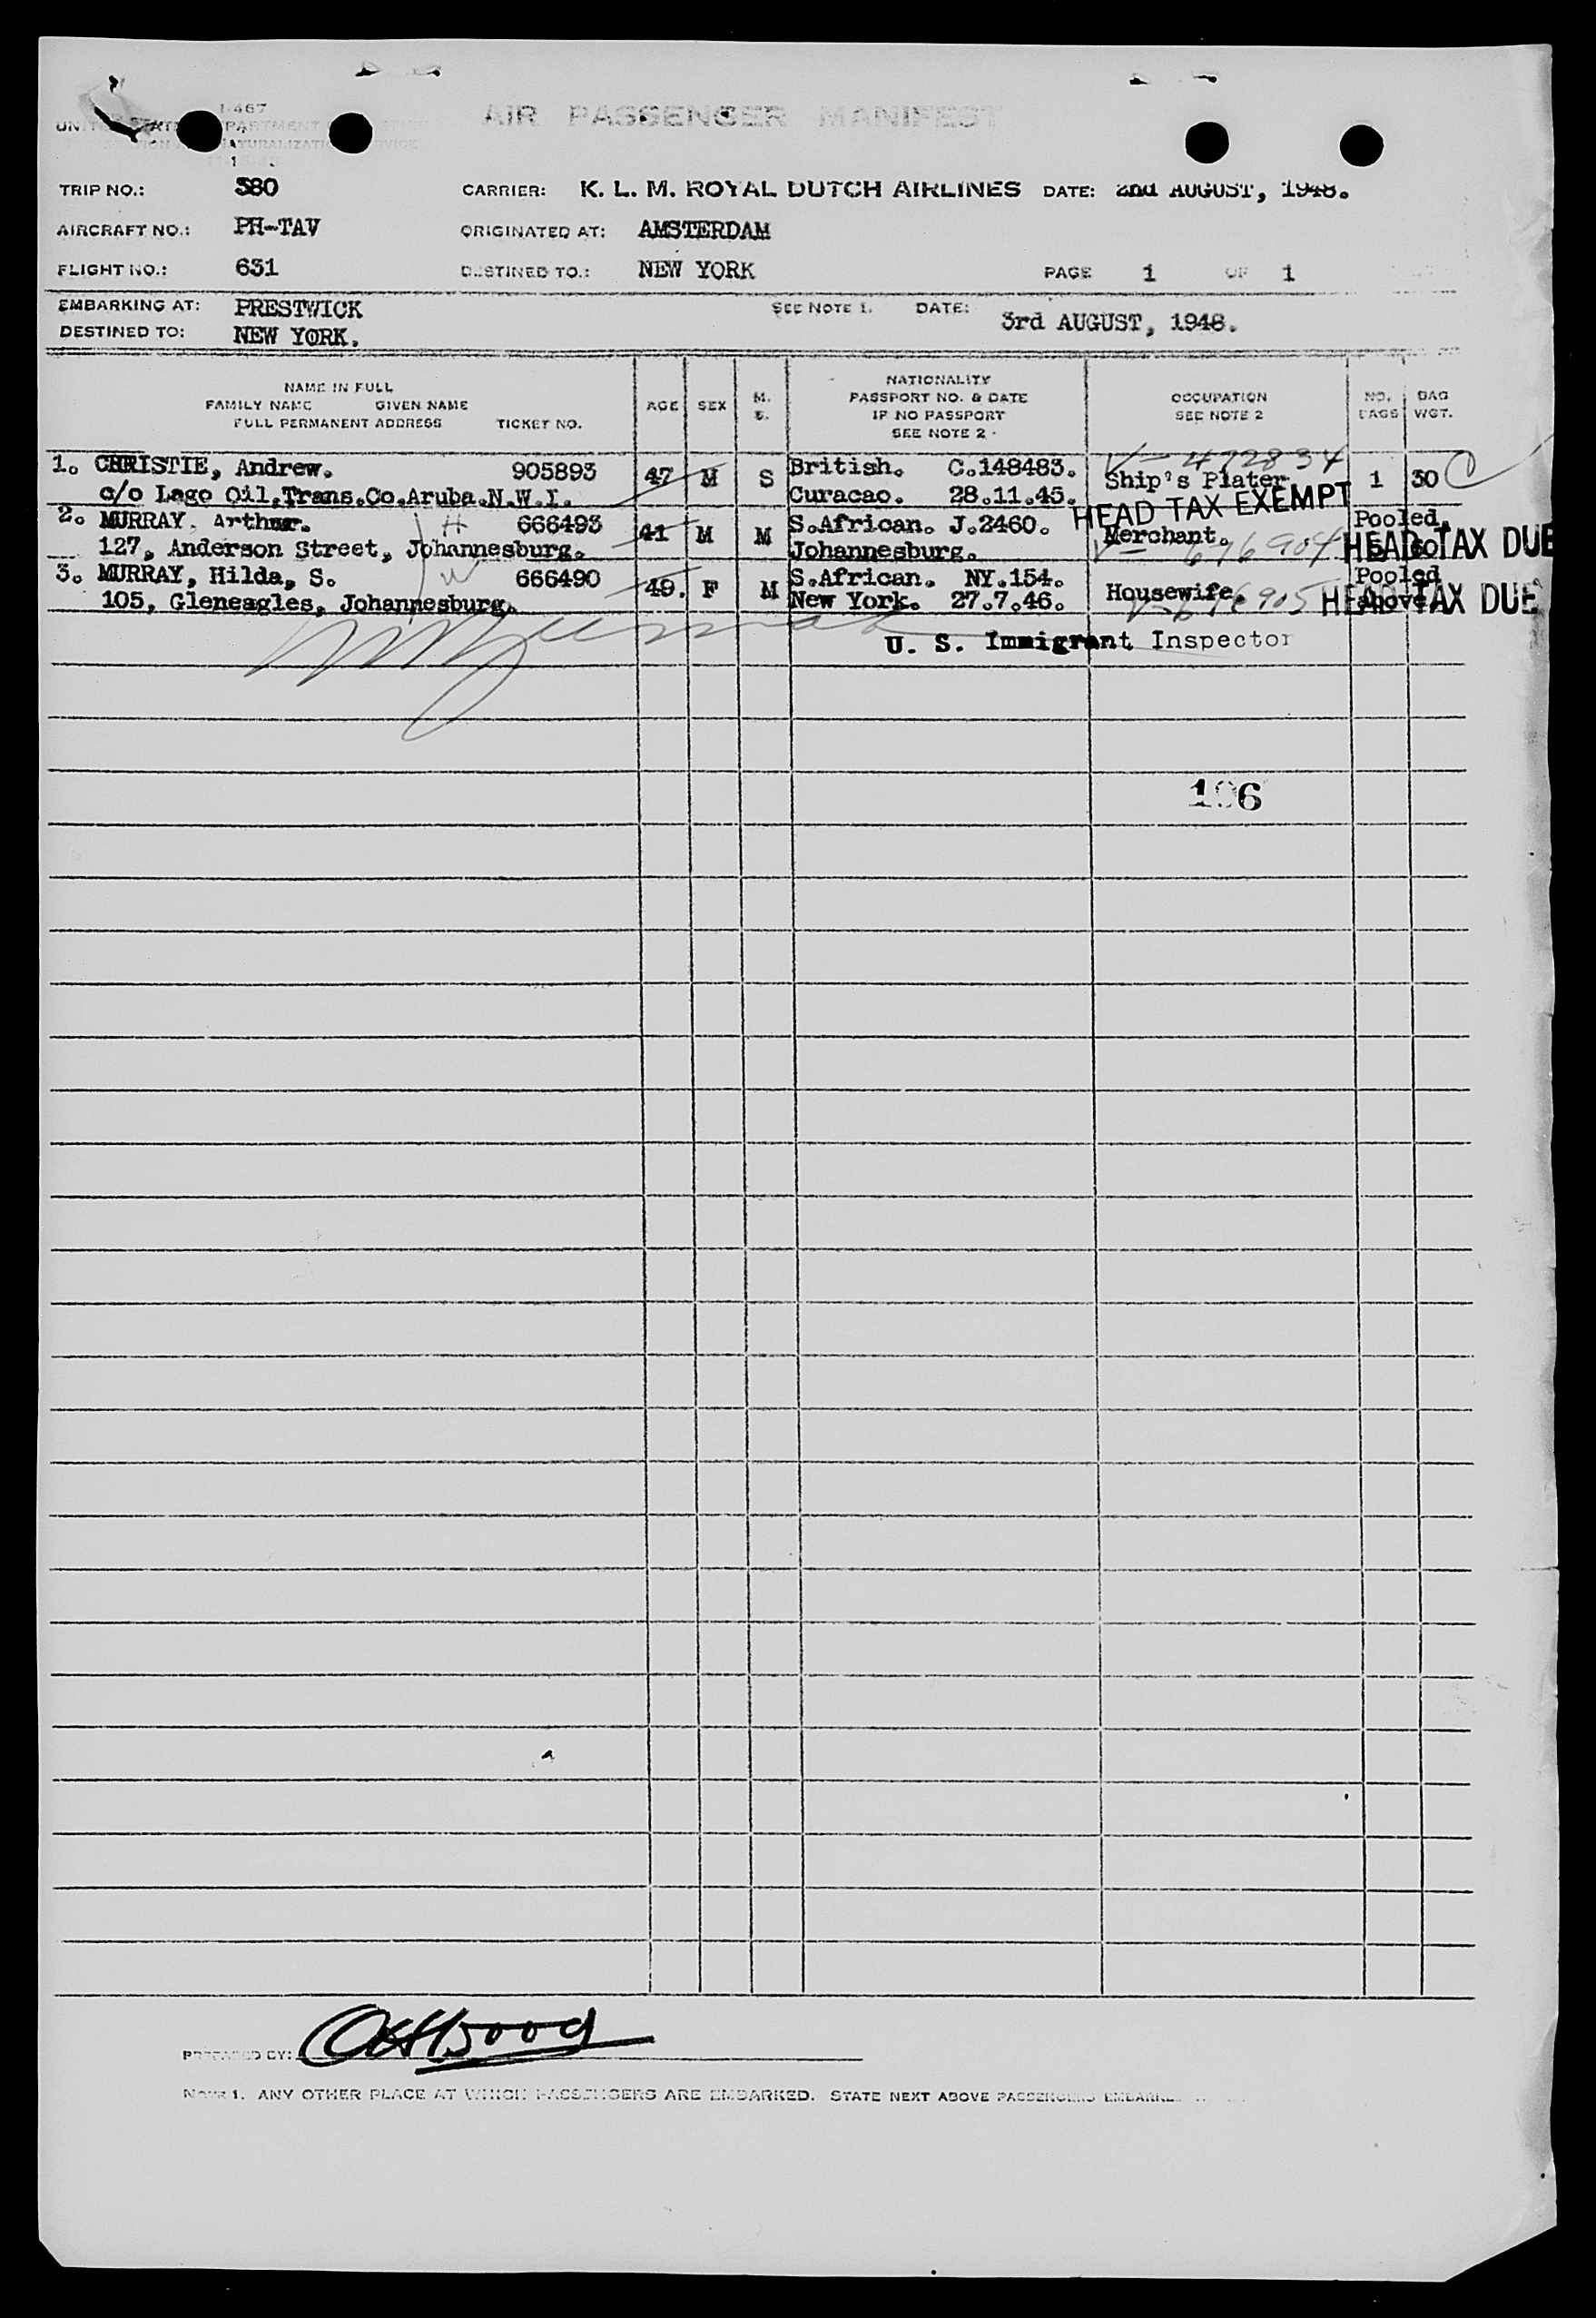 I-467
AIR PASSENGER MANIFEST
TRIP NO.: 380 CARRIER: K. L. M. ROYAL DUTCH AIRLINES DATE: 2nd AUGUST, 1948.
AIRCRAFT NO.: PH-TAV ORIGINATED AT: AMSTERDAM
FLIGHT NO.: 631 DESTINED TO.: NEW YORK PAGE 1 OF 1
EMBARKING AT: PRESTWICK SEE NOTE 1. DATE: 3rd AUGUST, 1948.
DESTINED TO: NEW YORK.
NAME IN FULL
FAMILY NAME GIVEN NAME
FULL PERMANENT ADDRESS TICKET NO.
AGE SEX M. S.
NATIONALITY
PASSPORT NO. & DATE
IF NO PASSPORT
SEE NOTE 2
OCCUPATION
SEE NOTE 2
NO. BAGS
BAG WGT.
1. CHRISTIE, Andrew. 905893 47 M S British. C.148483. V- 472834 Ship's Plater 1 30 C
c/o Lago Oil.Trans.Co.Aruba.N.W.I. Curacao. 28.11.45. HEAD TAX EXEMPT
2. MURRAY. Arthur. H 666493 41 M M S.African. J.2460. Merchant. Pooled.
127, Anderson Street, Johannesburg. Johannesburg. V- 676904 HEAD TAX DUE
3. MURRAY, Hilda, S. W 666490 49. F M S.African. NY.154. Housewife. Pooled
105, Gleneagles, Johannesburg. New York. 27.7.46. V-676905 above HEAD TAX DUE
U. S. Immigrant Inspector
PREPARED BY:
NOTE 1. ANY OTHER PLACE AT WHICH PASSENGERS ARE EMBARKED. STATE NEXT ABOVE PASSENGERS